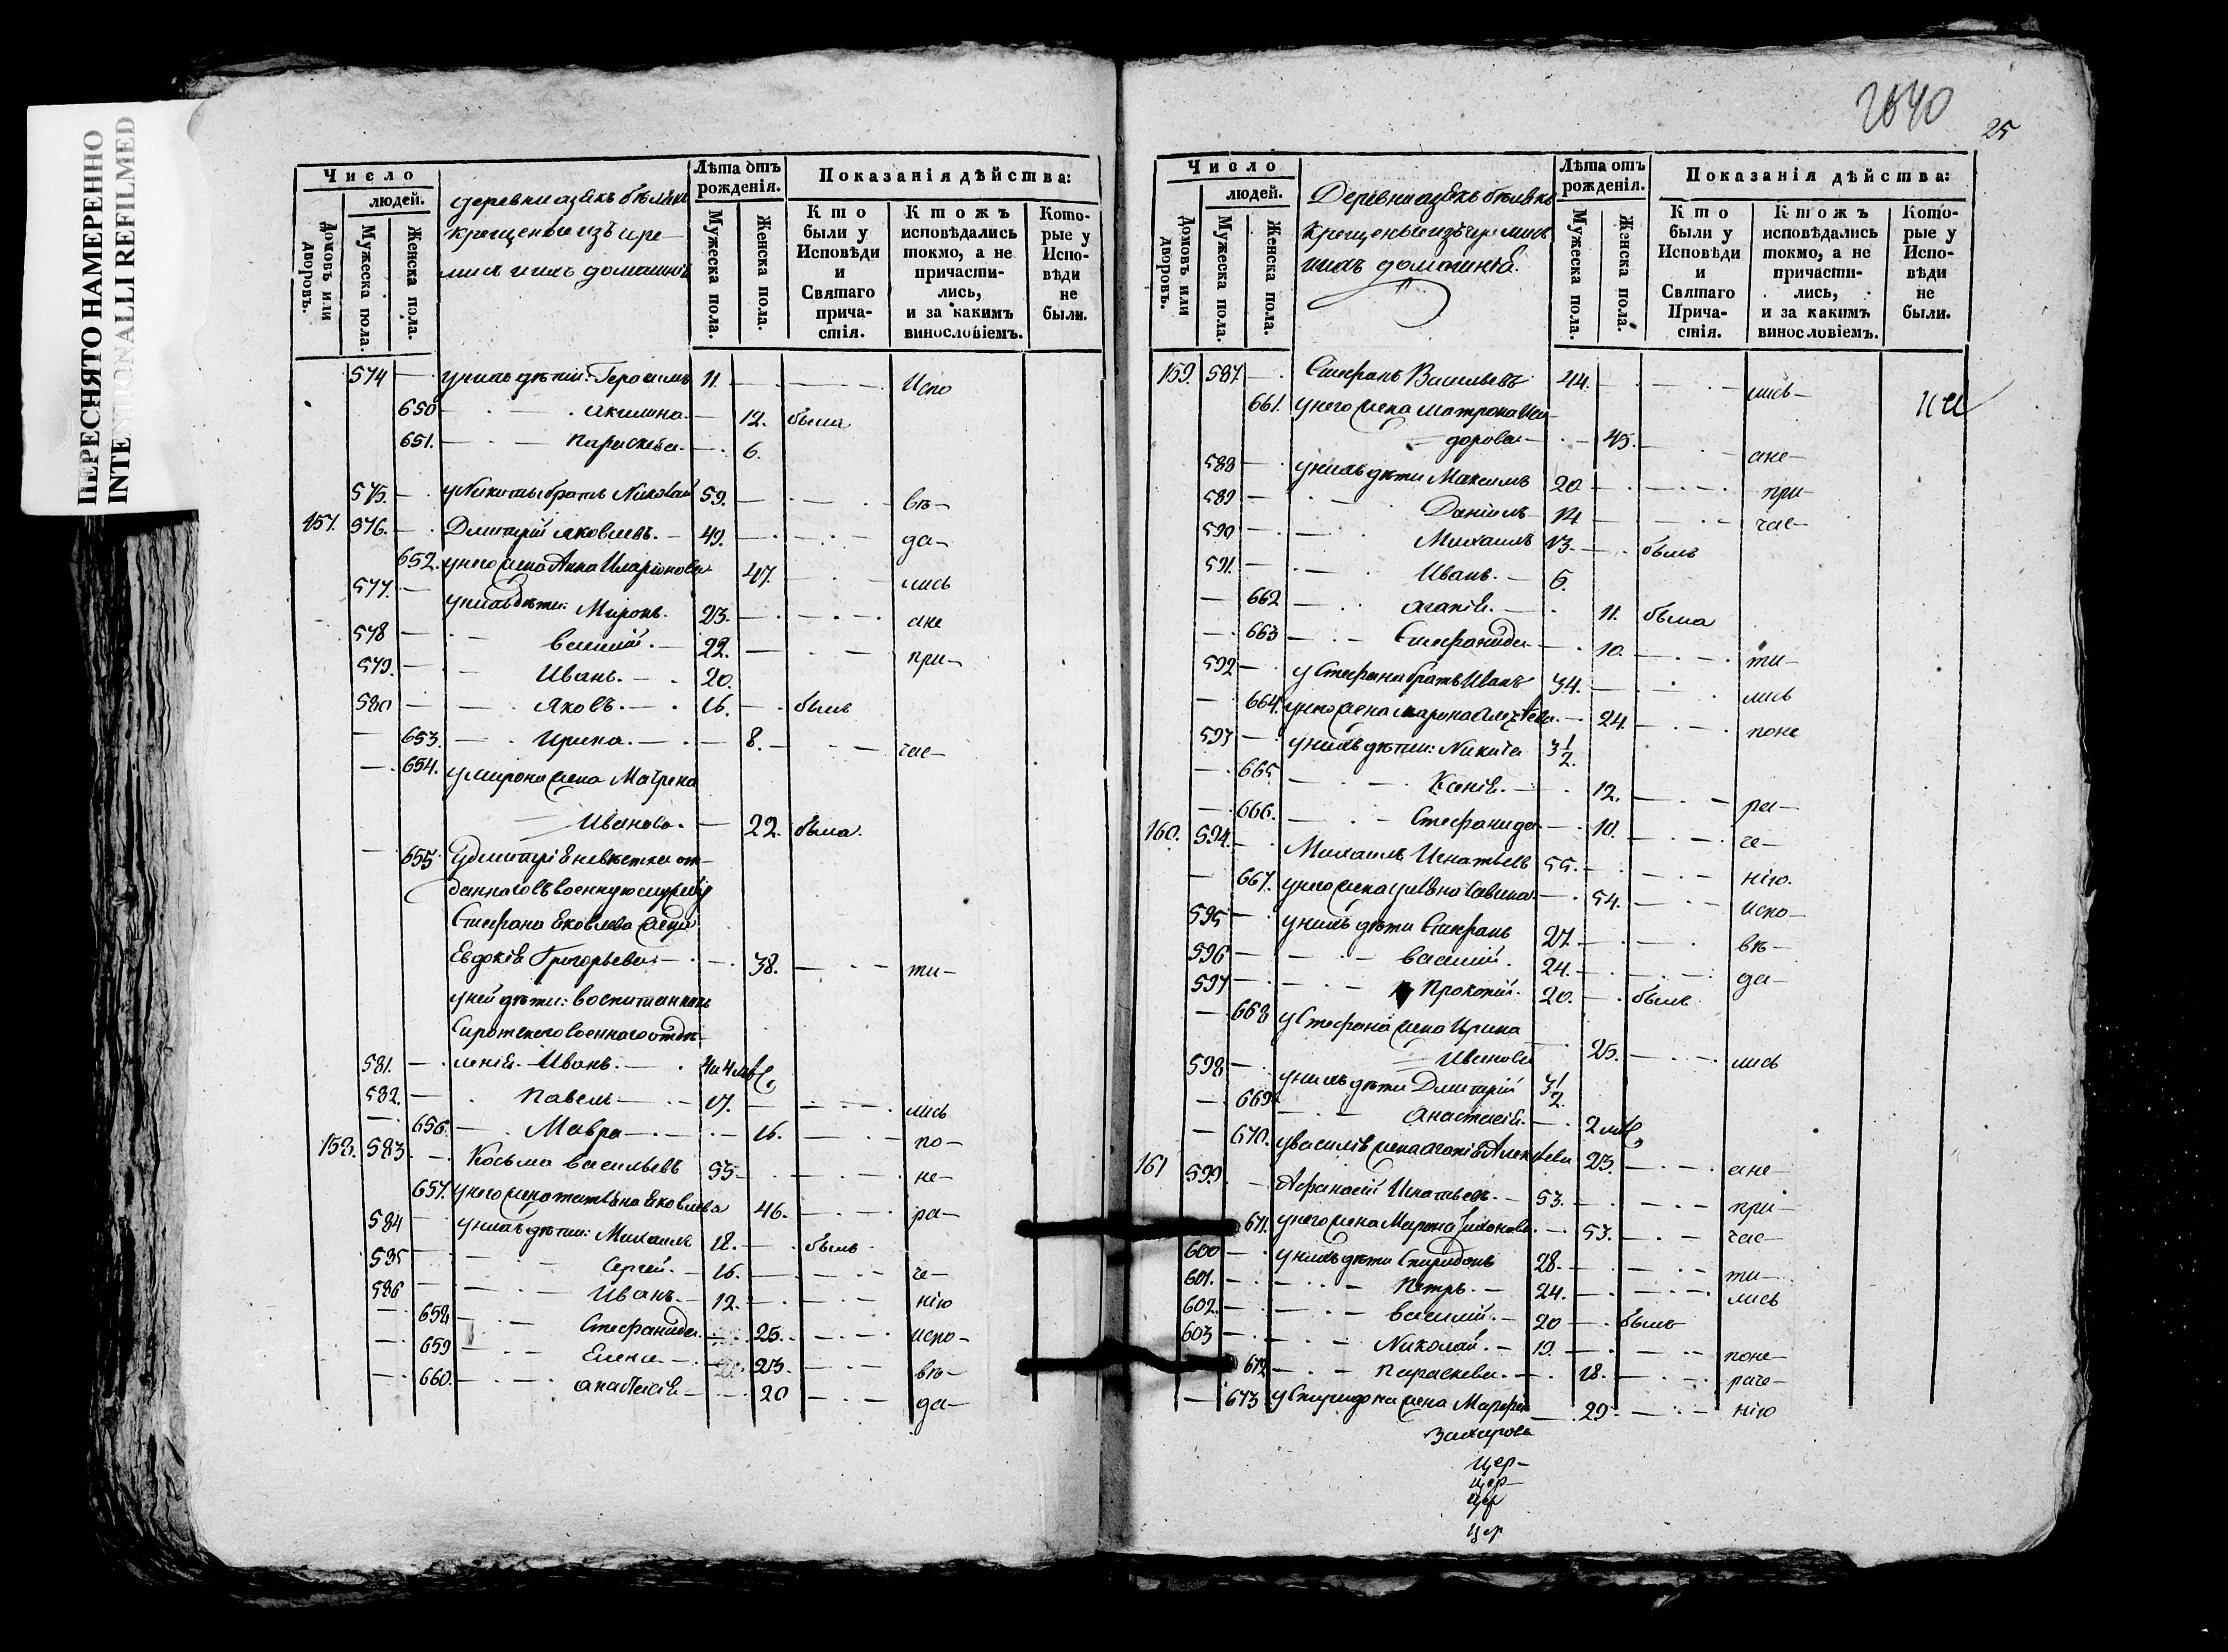 ПЕРЕСНЯТО НАМЕРЕННО
INTENTIONALLI REFILMED
Число
людей.
Домовъ или дворовъ.
Мужеска пола.
Женска пола.
деревни
крещеные изъ чере-
мисъ и ихъ домашнiе
Лѣта отъ рожденiя.
Мужеска пола.
Женска пола.
Показанiя дѣйства:
Кто были у Исповѣди и Святаго прича-стiя.
Ктожъ исповѣдались токмо, а не причасти-лись, и за какимъ винословiемъ.
Кото-рые у Испо-вѣди не были.
574 — у нихъ дѣти: Геросимъ 11. — Испо
650 — Акилина — 12. была
651. — Параскева — 6.
575. — у Никиты братъ Николай 59. — вѣ-
157. 576. — Дмитрiй Яковлевъ. — 49. — да-
652. у него жена Анна Иларiонова 47. — лись
577. — у нихъ дѣти: Миронъ. 23. — ане
578 — Василiй. — 22. — при-
579. — Иванъ. — 20.
580 — Яковъ. — 16. — былъ
653. — Ирина. — 8. — час-
654. у Мирона жена Матрена
Иванова. — 22. была.
655. у Дмитрiя невѣстка от-
даннаго въ военную службу
Стефана Яковлева жена
Евдокiя Григорьева — 38. — ти-
у ней дѣти: воспитанники
Сиротскаго военнаго отдѣ-
581. — ленiя. Иванъ. —
582. — Павелъ — 17. — лись
656. — Мавра — 16. — по-
158. 583. — Косьма Васильевъ 55 — не-
657. у него жена татьяна Яковлева 46. — ра-
584 — у нихъ дѣти: Михаилъ 18. — былъ
585 — Сергей. — 16. — че-
586 — Иванъ. — 12. — нiю
658 — Стефанида. — 25. — испо-
659 — Елена. — 23. — вѣ-
660. — Анастасiя — 20 — да-
2640
25
Число
людей.
Домовъ или дворовъ.
Мужеска пола.
Женска пола.
Деревни
крещеные изъ черемисъ
и ихъ домашнiя.
Лѣта отъ рожденiя.
Мужеска пола.
Женска пола.
Показанiя дѣйства:
Кто были у Исповѣди и Святаго Прича-стiя.
Ктожъ исповѣдались токмо, а не причасти-лись, и за какимъ винословiемъ.
Кото-рые у Испо-вѣди не были.
159. 587. — Стефанъ Васильевъ 44. — лись —
661. у него жена Матрона Иси-
дорова — 45. — ане —
588 — у нихъ дѣти Максимъ 20 — при-
589 — Данiилъ — 14 — час-
590 — Михаилъ 13. — былъ
591. — Иванъ. — 6.
662 — Агапiя. — 11. была
663 — Стефанида — 10. — ти-
592 — у Стефана братъ Иванъ 34. — лись
664. у него жена — 24. — поне
593 — у нихъ дѣти: Никита 3 1/2.
665 — Ксенiя. — 12. — ра-
666. — Стефанида — 10. — че-
160. 594. — Михаилъ Игнатьевъ 55. — нiю.
667. у него жена Савина — 54. — испо-
595 — у нихъ дѣти Стефанъ 27. — вѣ-
596 — Василiй. 24. — да-
597 — Прокопiй. 20. — былъ
668 у Стефана жена Ирина
Иванова — 25. — лись
598 — у нихъ дѣти Дмитрiй 3 1/2
669. — Анастасiя. —
670. у Василiя жена Агапiя Алексѣева 23. — ане-
161 599. — Афанасiй Игнатьевъ. — 53. — при-
671. у него жена — 53. — час-
600 — у нихъ дѣти Спиридонъ 28. — ти-
601. — Петръ. — 24. — лись
602. — Василiй. — 20 — былъ
603 — Николай. — 19. — поне-
672 — Параскева. — 18. — раче-
673 у Спиридона жена Марфа — 29. — нiю
Захарова
цер-
цер-
цер
цер